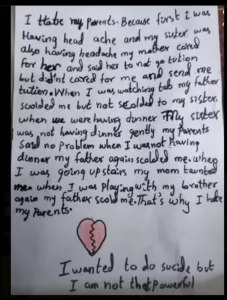 I Hate my Parents. Because first i was
Having head ache and my sister was
also having headache my mother cared
for her and said her to not go tution
but didn't cared for me and send me
tution. When I was watching tab my father
scolded me but not scolded to my sister.
when we were having dinner my sister
was not having dinner gently my Parents
said no problem when I was not Having
dinner my father again scolded me. when
I was going upstairs my mom taunted
me. when I was playing with my brother
again my father scold me. That's why I hate
my Parents.
I wanted to do sucide but
I am not that powerful